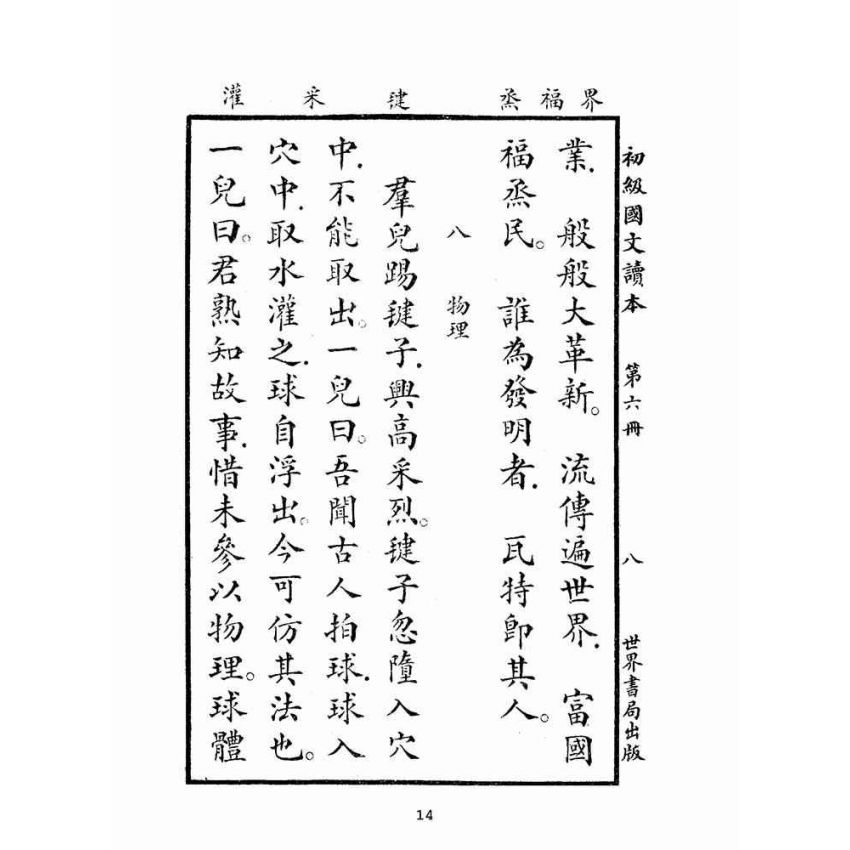 界福烝 毽 采 灌
初級國文讀本 第六冊 八 世界書局出版
業. 般般大革新。 流傳遍世界. 富國
福烝民。 誰為發明者. 瓦特即其人。
八 物理
羣兒踢毽子.興高采烈。毽子忽墮入穴
中.不能取出。一兒曰。吾聞古人拍球.球入
穴中.取水灌之.球自浮出。今可仿其法也。
一兒曰。君熟知故事.惜未參以物理。球體
14